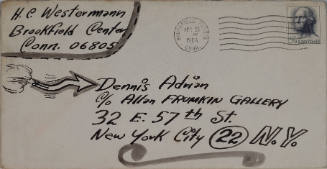 H.C. Westermann
Brookfield Center
Conn. 06805
Dennis Adrian
c/o Allan FRUMKIN GALLERY
32 E. 57th St.
New York City (22) N.Y.